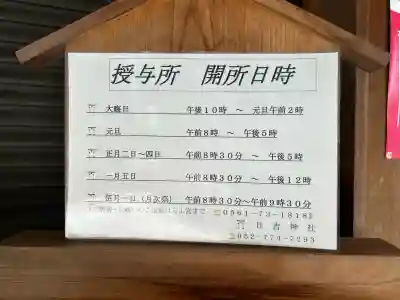 授与所 開所日時
大晦日 午後10時 ~ 元旦午前2時
元旦 午前8時 ~ 午後5時
正月二日~四日 午前8時30分 ~ 午後5時
一月五日 午前8時30分 ~ 午後12時
毎月一日(月次祭) 午前8時30分~午前9時30分
0961-73-1818
日吉神社